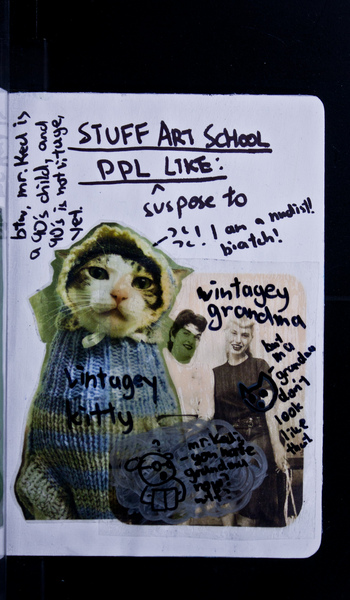 STUFF ART SCHOOL
PPL LIKE:
^
suspose to
btw, mr. Ked is
a 90's child, and
90's is not vintage,
yet.
I am a nudist!!
biatch!
vintagey
grandma
but
my
grandma
don't
look
like
that
vintagey
kitty
mr. Ked:
you make
grandma